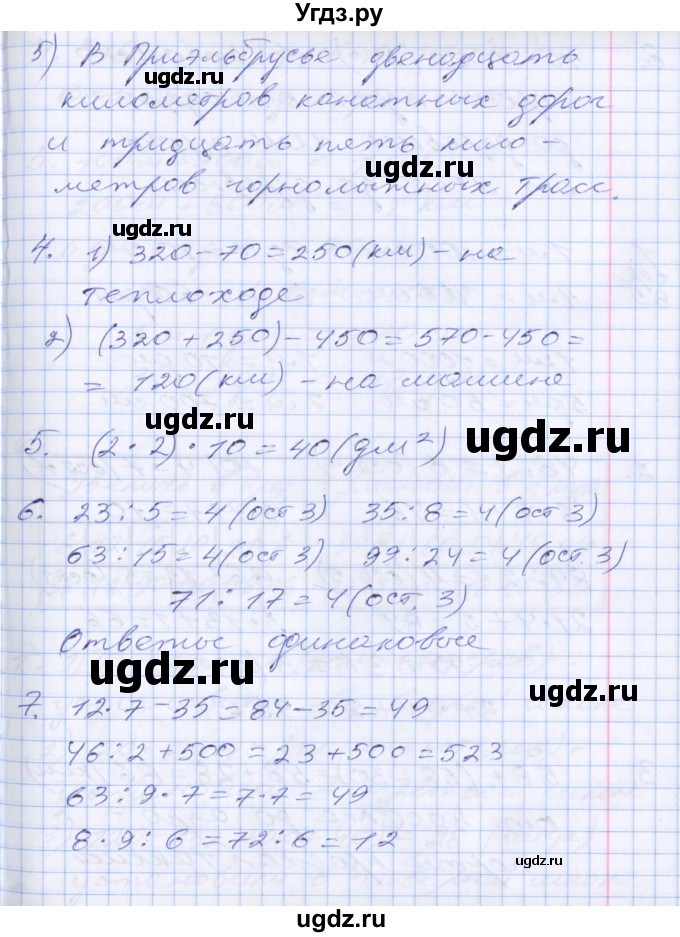 Угдз.ру
5) В Приэльбрусье двенадцать
ugdz.ru
километров канатных дорог
и тридцать пять кило-
ugdz.ru
метров горнолыжных трасс.
ugdz.ru
4. 1) 320-70=250(км)-на
теплоходе
2) (320+250)-450=570-450=
= 120(км) - на машине
ugdz.ru
ugdz.ru
5. (2·2)·10=40(дм²)
6. 23:5=4(ост 3) 35:8=4(ост 3)
63:15=4(ост 3) 99:24=4(ост. 3)
71:17=4(ост. 3)
Ответы одинаковые
ugdz.ru
ugdz.ru
7. 12·7-35=84-35=49
46:2+500=23+500=523
63:9·7=7·7=49
8·9:6=72:6=12
ugdz.ru
ugdz.ru